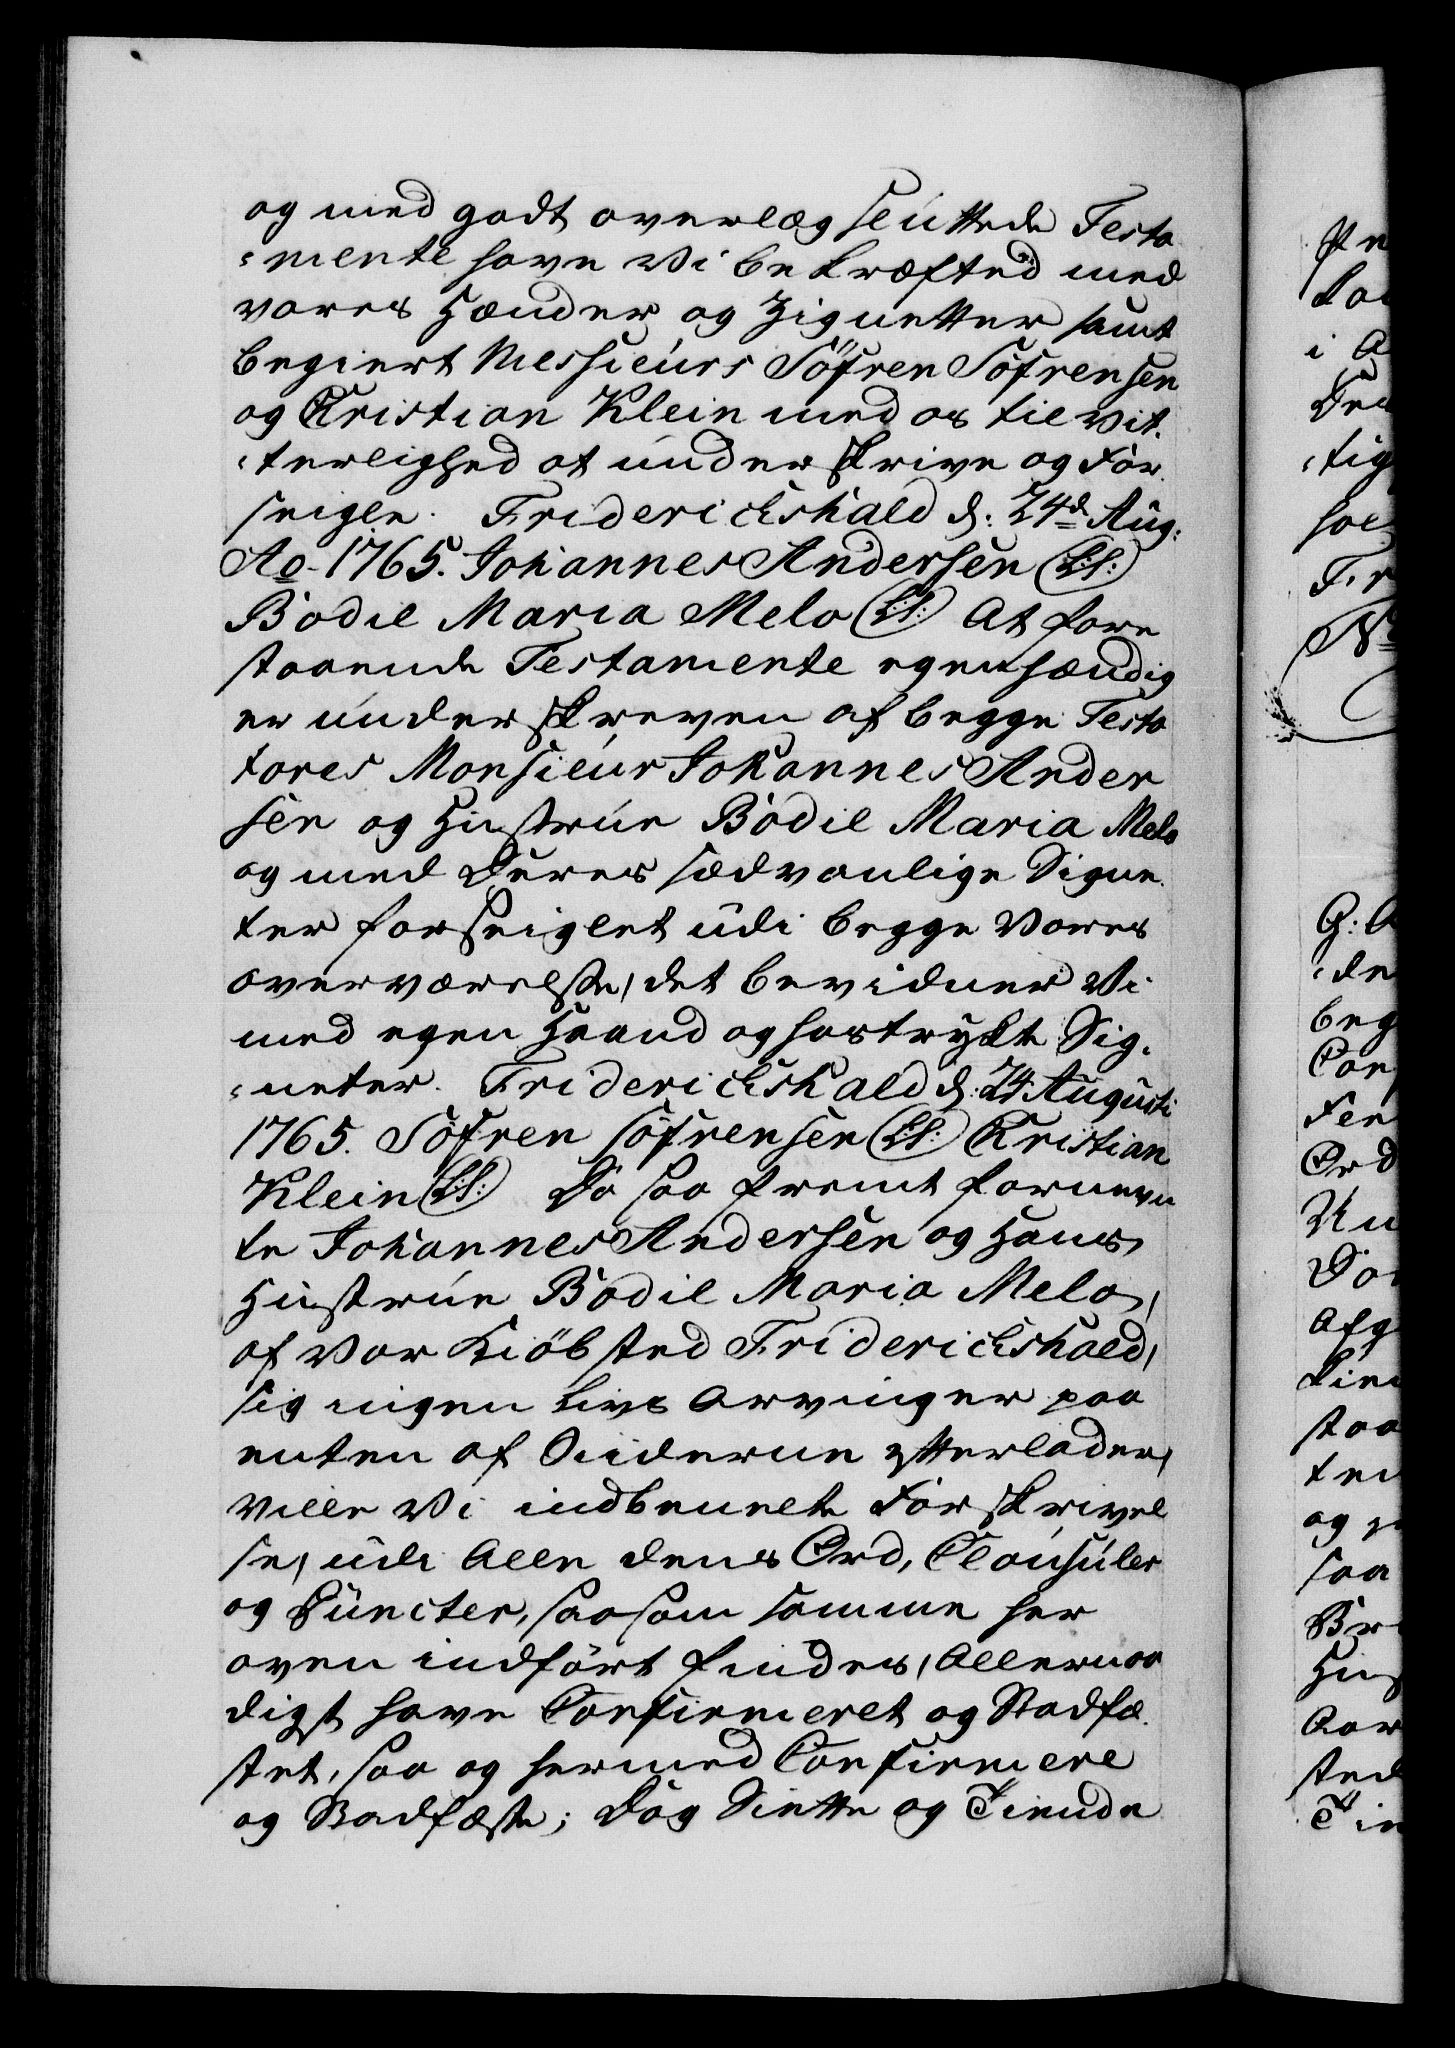 og med godt overlæg sluttede Testa
=mente have Vi bekræfted med
vores Hænder og Zignetter samt
begiert Messieurs Söfren Söfrensen
og Christian Klein med os til vit-
=terlighed at underskrive og For
seigle. Friderichshald d: 24de Aug:
Ao. 1765. Johannes Andersen (L:S:)
Bodil Maria Melo (L:S:) At fore
staaende Testamente egenhændig
er underskreven af begge Testa
tores Monsieur Johannes Ander
sen og Hustrue Bodil Maria Melo
og med Deres sædvanlige Signe
ter forseiglet udi begge Vores
overværelse, det bevidner Vi
med egen Haand og hostrykte Sig-
=neter. Friderichshald d: 24 Augusti
1765. Söfren Söfrensen (L:S:) Christian
Klein (L:S:) Da saa fremt fornevn
te Johannes Andersen og Hans
Hustrue Bodil Maria Melo,
af Vor Kiöbsted Friderichshald,
sig ingen Livs Arvinger paa
enten af Siiderne efterlader,
ville Vi indbemelte Forskrivel
se, udi Alle dens Ord, Clausuler
og Puncter, saasom samme her
oven indført findes, Allernaa
digst have Confirmeret og Stadfæ
stet, saa og hermed Confirmere
og Stadfæste; Dog Siette og Tiende